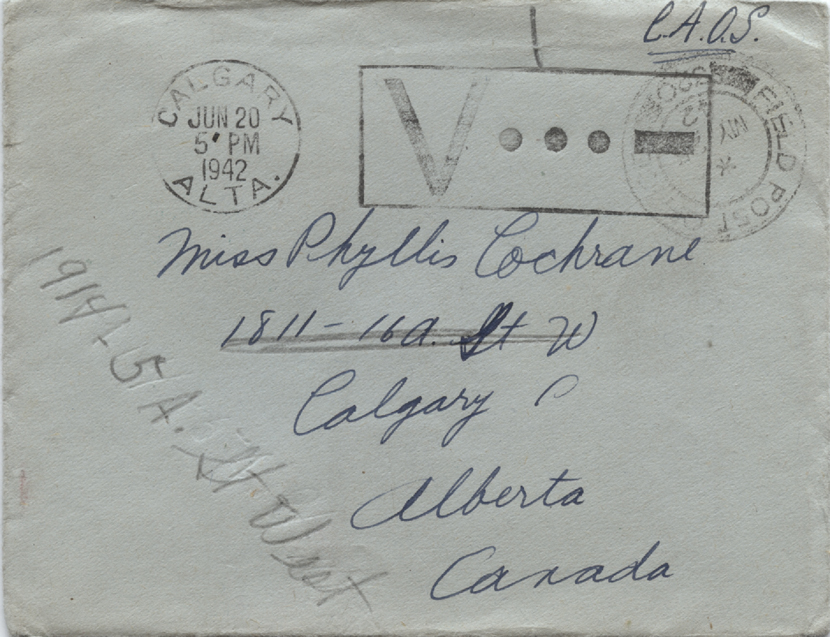 C.A.O.S.
CALGARY
JUN 20
5 PM
1942
ALTA.
V
FIELD POST
MY
Miss Phyllis Cochrane
1811-16A. St W
Calgary
Alberta
Canada
1914-5A. St West